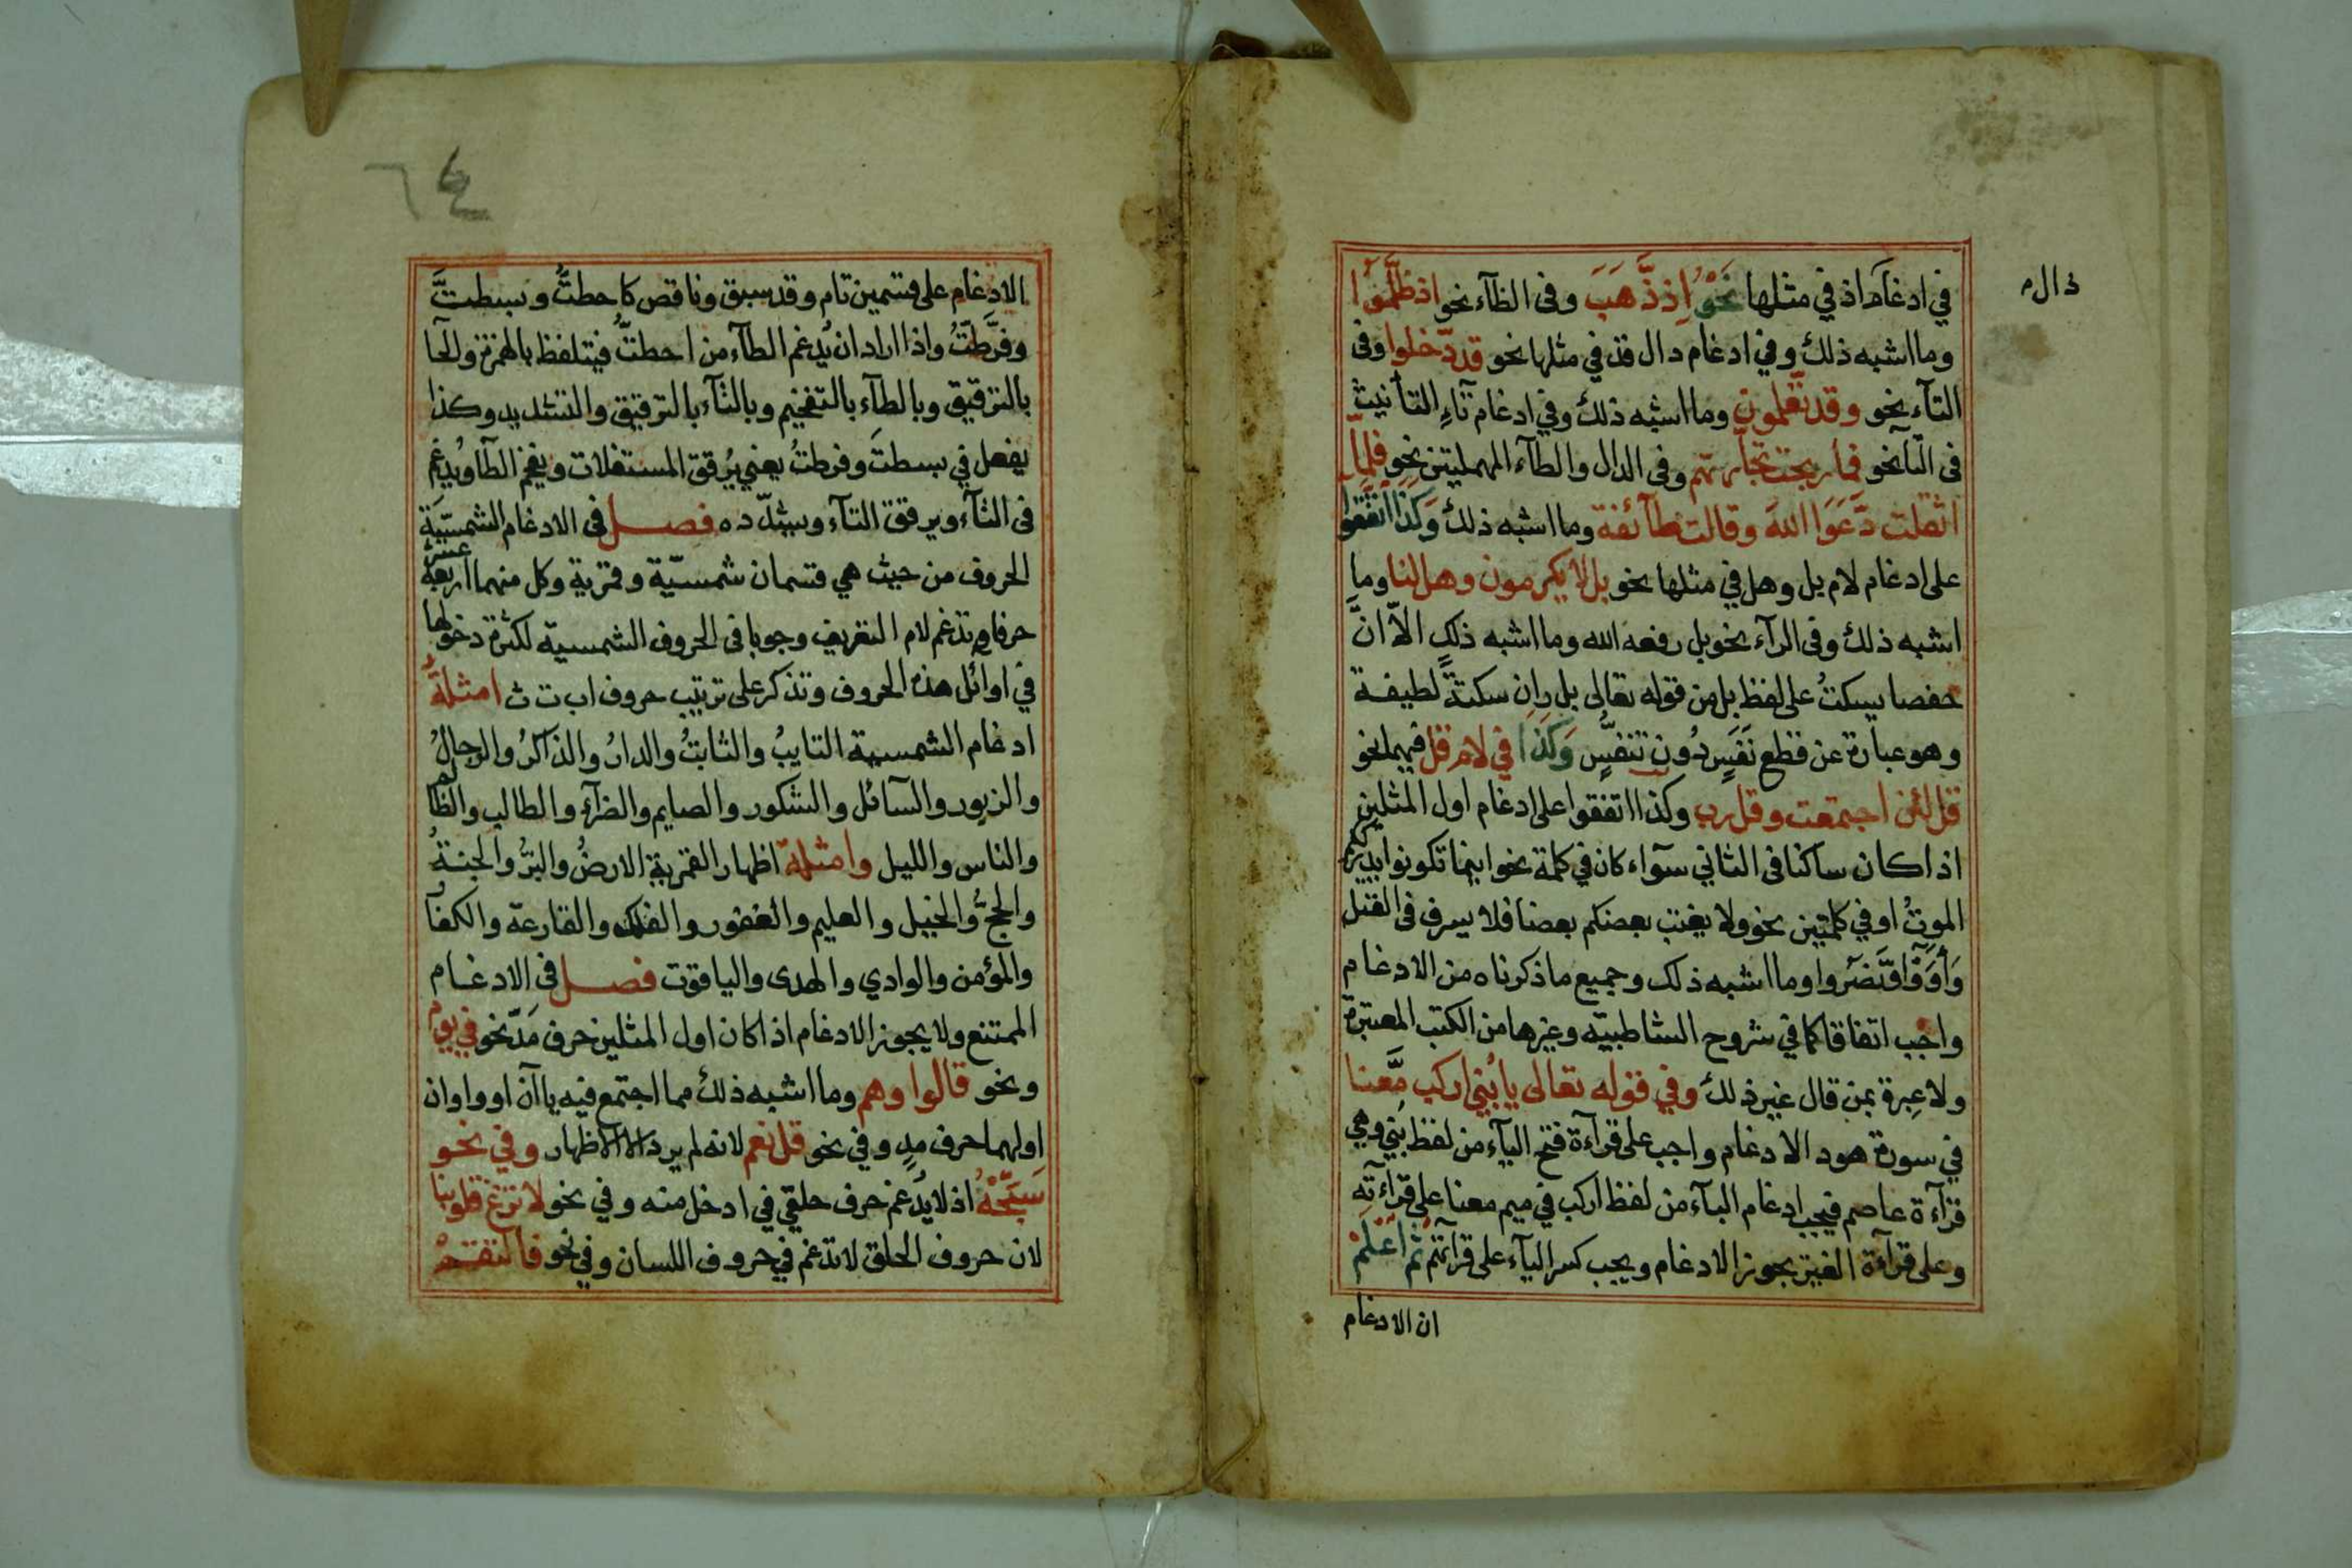 ذال
في ادغام اذ في مثلها نَحْوُ اِذ ذَّهَبَ وفى الظآء نحو اذ ظَّلَمُوٓا
وما اشبه ذلك وفي ادغام دال قد في مثلها نحو قد دّخلوا وفى
التآء نحو وقد تّعلمون وما اشبه ذلك وفي ادغام تآءِ التأنيث
فى التّآ نحو فما ربحت تّجارتهم وفى الدال والطآء المهملتين نحو فلمّا
اثقلت دَّعَوَا اللهَ وقالت طآئفة وما اشبه ذلك وَكَذَا اتَّفَقُوا
على ادغام لام بل وهل في مثلها نحو بل لا يكرمون وهل لنا وما
اشبه ذلك وفى الرآء نحو بل رفعه الله وما اشبه ذلك الاّ انَّ
حفصا يسكتُ على لفظ بل من قوله تعالى بل ران سكتةً لطيفة
وهو عبارة عن قطع نَفَسٍ دُون تنفُّسٍ وَكَذَا في لام قل فيهما نحو
قل لئن اجتمعت وقل رب وكذا اتفقوا على ادغام اول المثلين
اذا كان ساكنا فى الثاني سوآء كان في كلمة نحو اينما تكونوا يدرككم
الموتُ او في كلمتين نحو ولا يغتب بعضكم بعضا فلا يسرف فى القتل
وَآوَوْا وَّنَصَروا وما اشبه ذلك وجميع ما ذكرناه من الادغام
واجب اتفاقا كما في شروح الشاطبيّه وغيرها من الكتب المعتبرة
ولا عِبرة بمن قال غير ذلك وفي قوله تعالى يا بُني اركب مَّعنا
في سورة هود الادغام واجب على قرآءة فتح اليآء من لفظ بُني وهي
قرآءة عاصم فيجب ادغام البآء من لفظ اركب في ميم معنا على قرآءته
وعلى قرآءة الغير يجوز الادغام ويجب كسر اليآء على قرآءتهم ثُم اعْلَمْ
ان الادغام
٦٤
الادغام على قسمين تام وقد سبق وناقص كاحطتُّ وبسطتَّ
وفرَّطتُّ واذا اراد ان يُدغم الطآء من احطتُّ فيتلفظ بالهمزة والحآ
بالترقيق وبالطآء بالتفخيم وبالتآء بالترقيق والتشديد وكذا
يفعل في بسطتَ وفرطتُ يعني يُرقق المستفلات ويفخم الطآ ويُدغم
فى التآء ويرفق التآء ويشدّده فصل فى الادغام الشمسّيَة
الحروف من حيث هي قسمان شمسيّة وقمرية وكل منهما اربعة عشر
حرفا وتدغم لام التعريف وجوبا فى الحروف الشمسية لكثرة دخولها
في اوائل هذه الحروف وتذكر على ترتيب حروف اب ت ث امثلةُ
ادغام الشمسية التايبُ والثابتُ والدارُ والذاكرُ والرجالُ
والزبور والسآئل والشكور والصايم والضآء والطالب والظآهر
والناس والليل وامثلة اظهار القمرية الارضُ والبرُّ والجنةُ
والحجُّ والخبيل والعليم والغفور والفلك والقارعة والكفآ
والمؤمن والوادي والهدى والياقوت فصل فى الادغام
الممتنع ولا يجوز الادغام اذا كان اول المثلين حرف مَدّ نحو في يوم
ونحو قالوا وهم وما اشبه ذلك مما اجتمع فيه ياآن او واوان
اولهما حرف مدٍ وفي نحو قل نعم لانه لم يرد الا الاظهار وفي نحو
سَبِّحْهُ اذ لا يدُغم حرف حلقي في ادخل منه وفي نحو لا تزغ قلوبنا
لان حروف الحلق لا تدغم في حروف اللسان وفي نحو فالتقمهْ